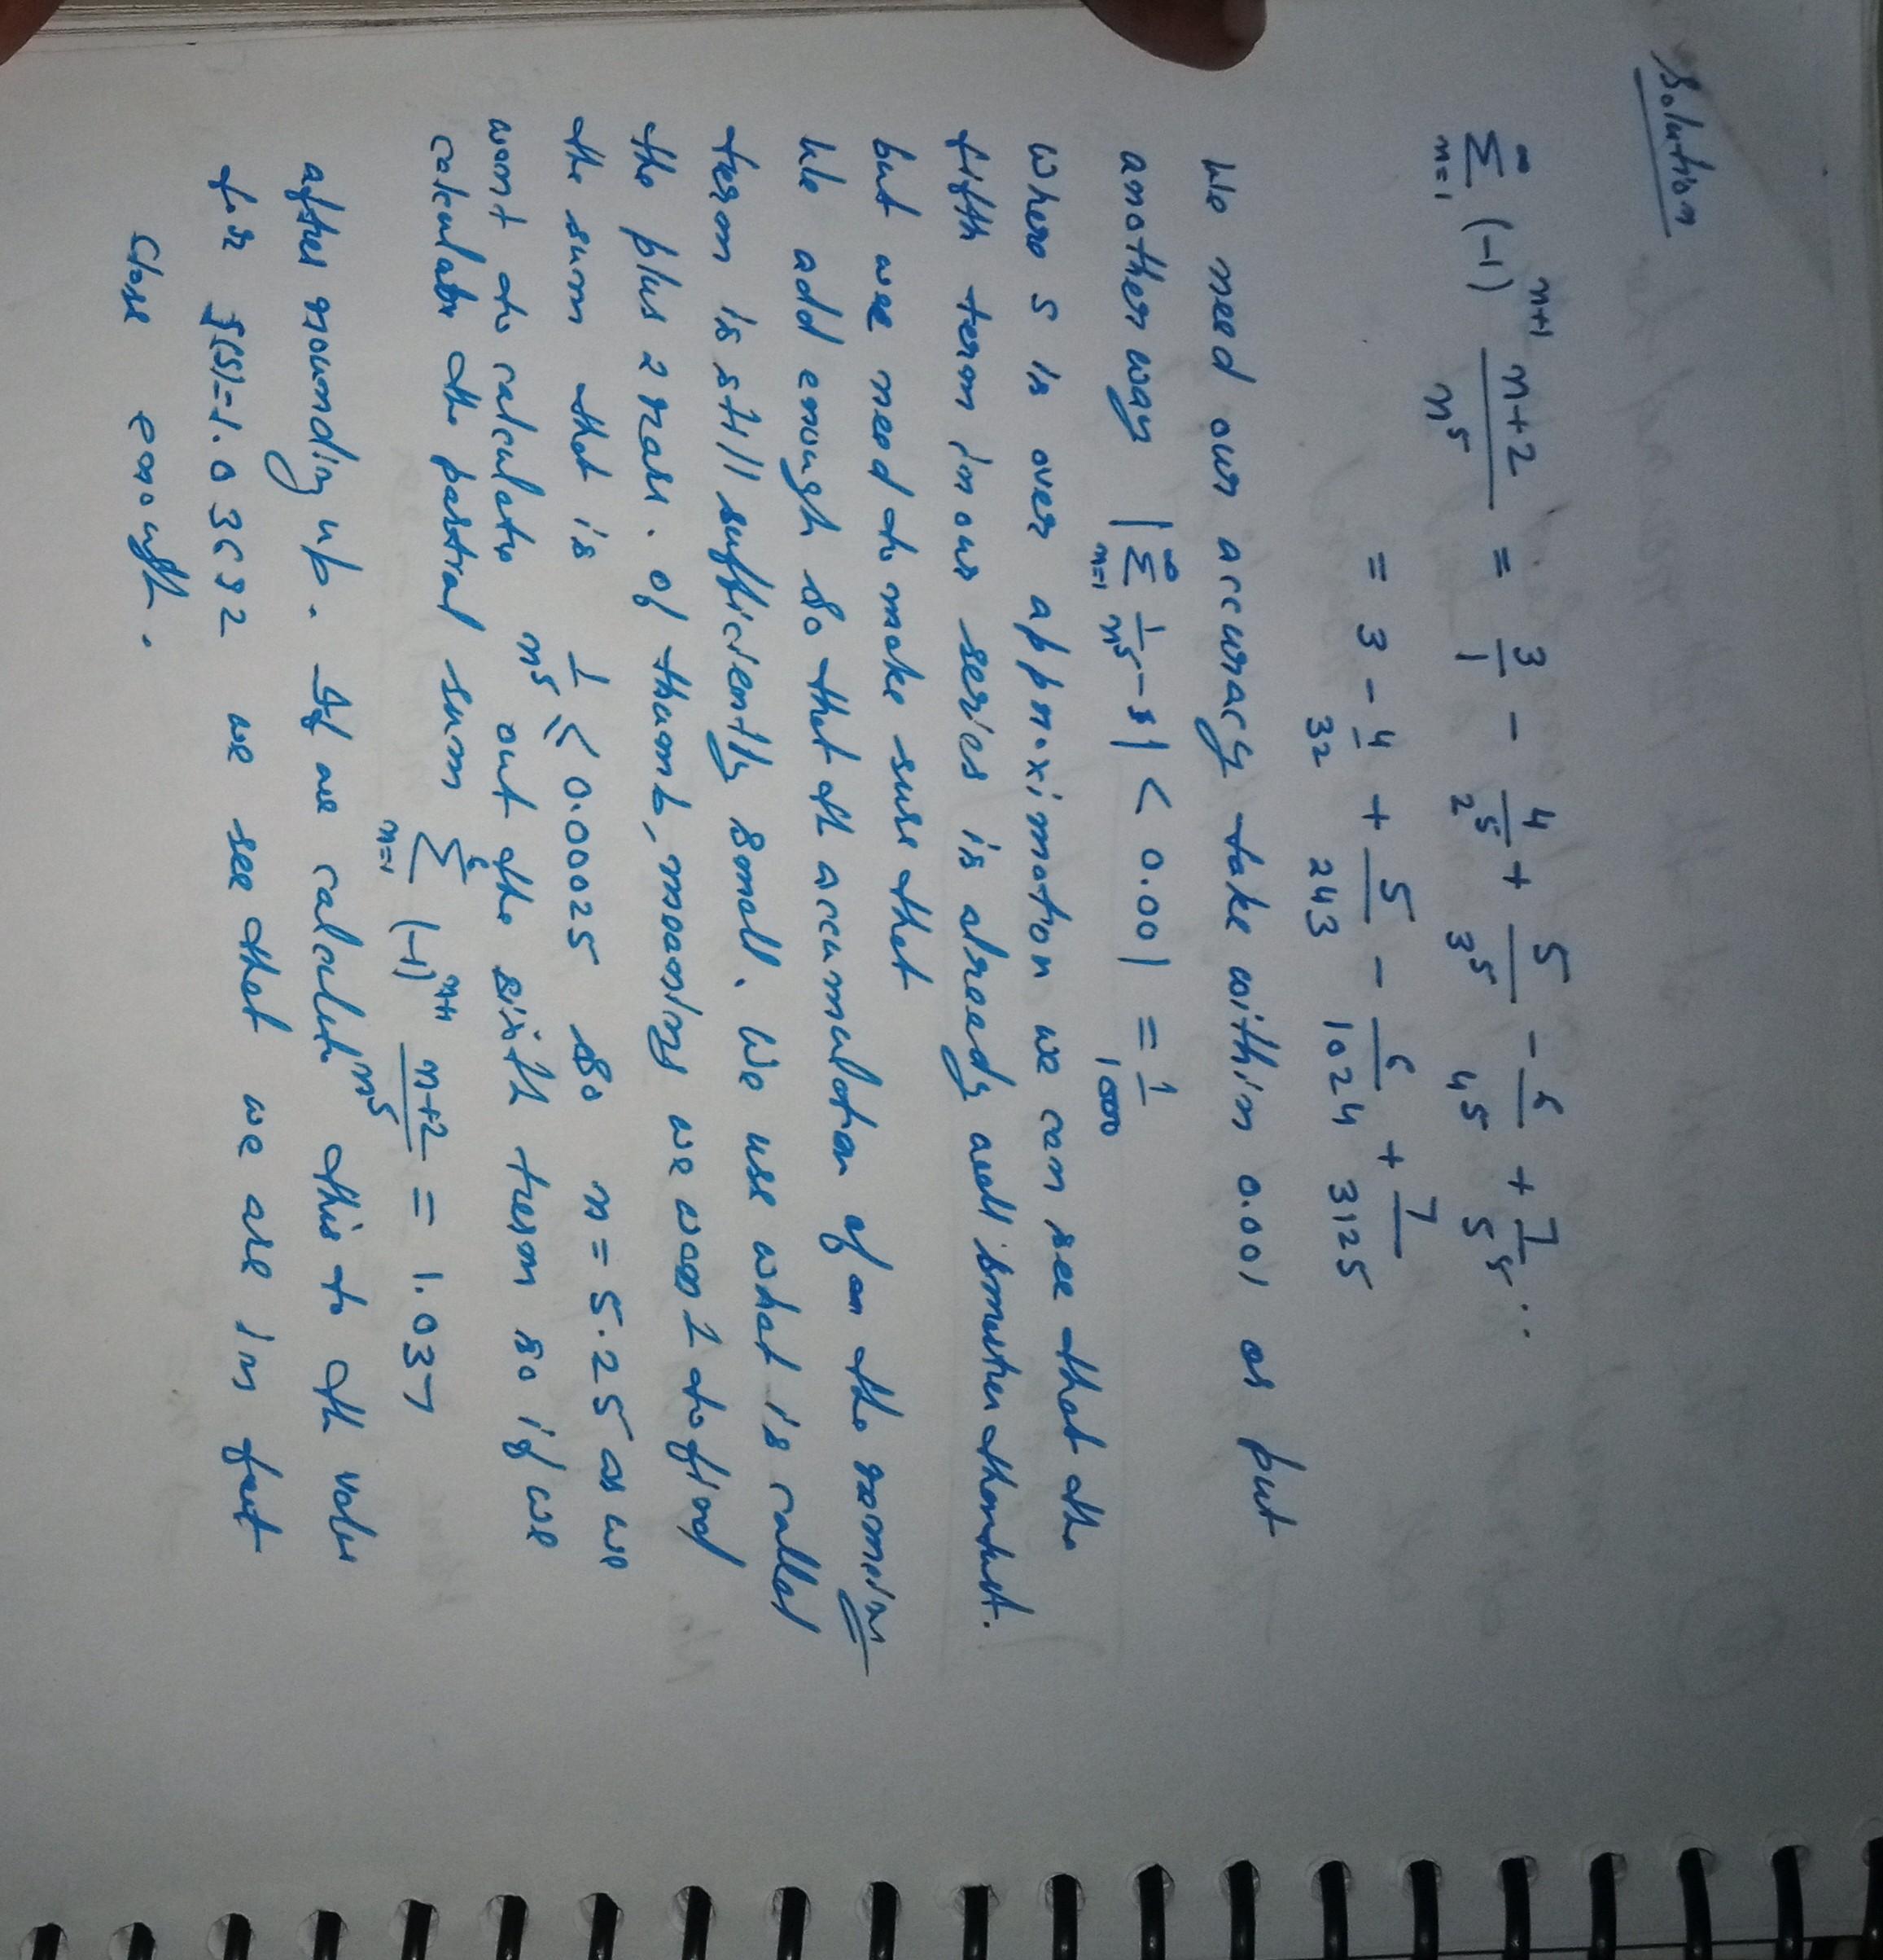 Solution
∞ Σ n=1 (-1)^{n+1} \frac{n+2}{n^5} = \frac{3}{1} - \frac{4}{2^5} + \frac{5}{3^5} - \frac{6}{4^5} + \frac{7}{5^5} ...
= 3 - \frac{4}{32} + \frac{5}{243} - \frac{6}{1024} + \frac{7}{3125}
We need our accuracy take within 0.001 or put
another way | ∞ Σ n=1 \frac{1}{n^5} - s | < 0.001 = \frac{1}{1000}
where s is over approximation we can see that the
fifth term in our series is already well smaller
but we need to make sure that
We add enough so that the accumulation of on the
term is still sufficiently small. We use what is called
the plus 2 of thumb, meaning we want to find
the sum that is \frac{1}{n^5} ≤ 0.00025 so n = 5.25 as we
want to calculate out the sixth term so if we
calculate the partial sum 6 Σ n=1 (-1)^{n+1} \frac{n+2}{n^5} = 1.037
after rounding up. If we calculate this to the value
for ξ(5)=1.03692 we see that we are in fact
close enough.